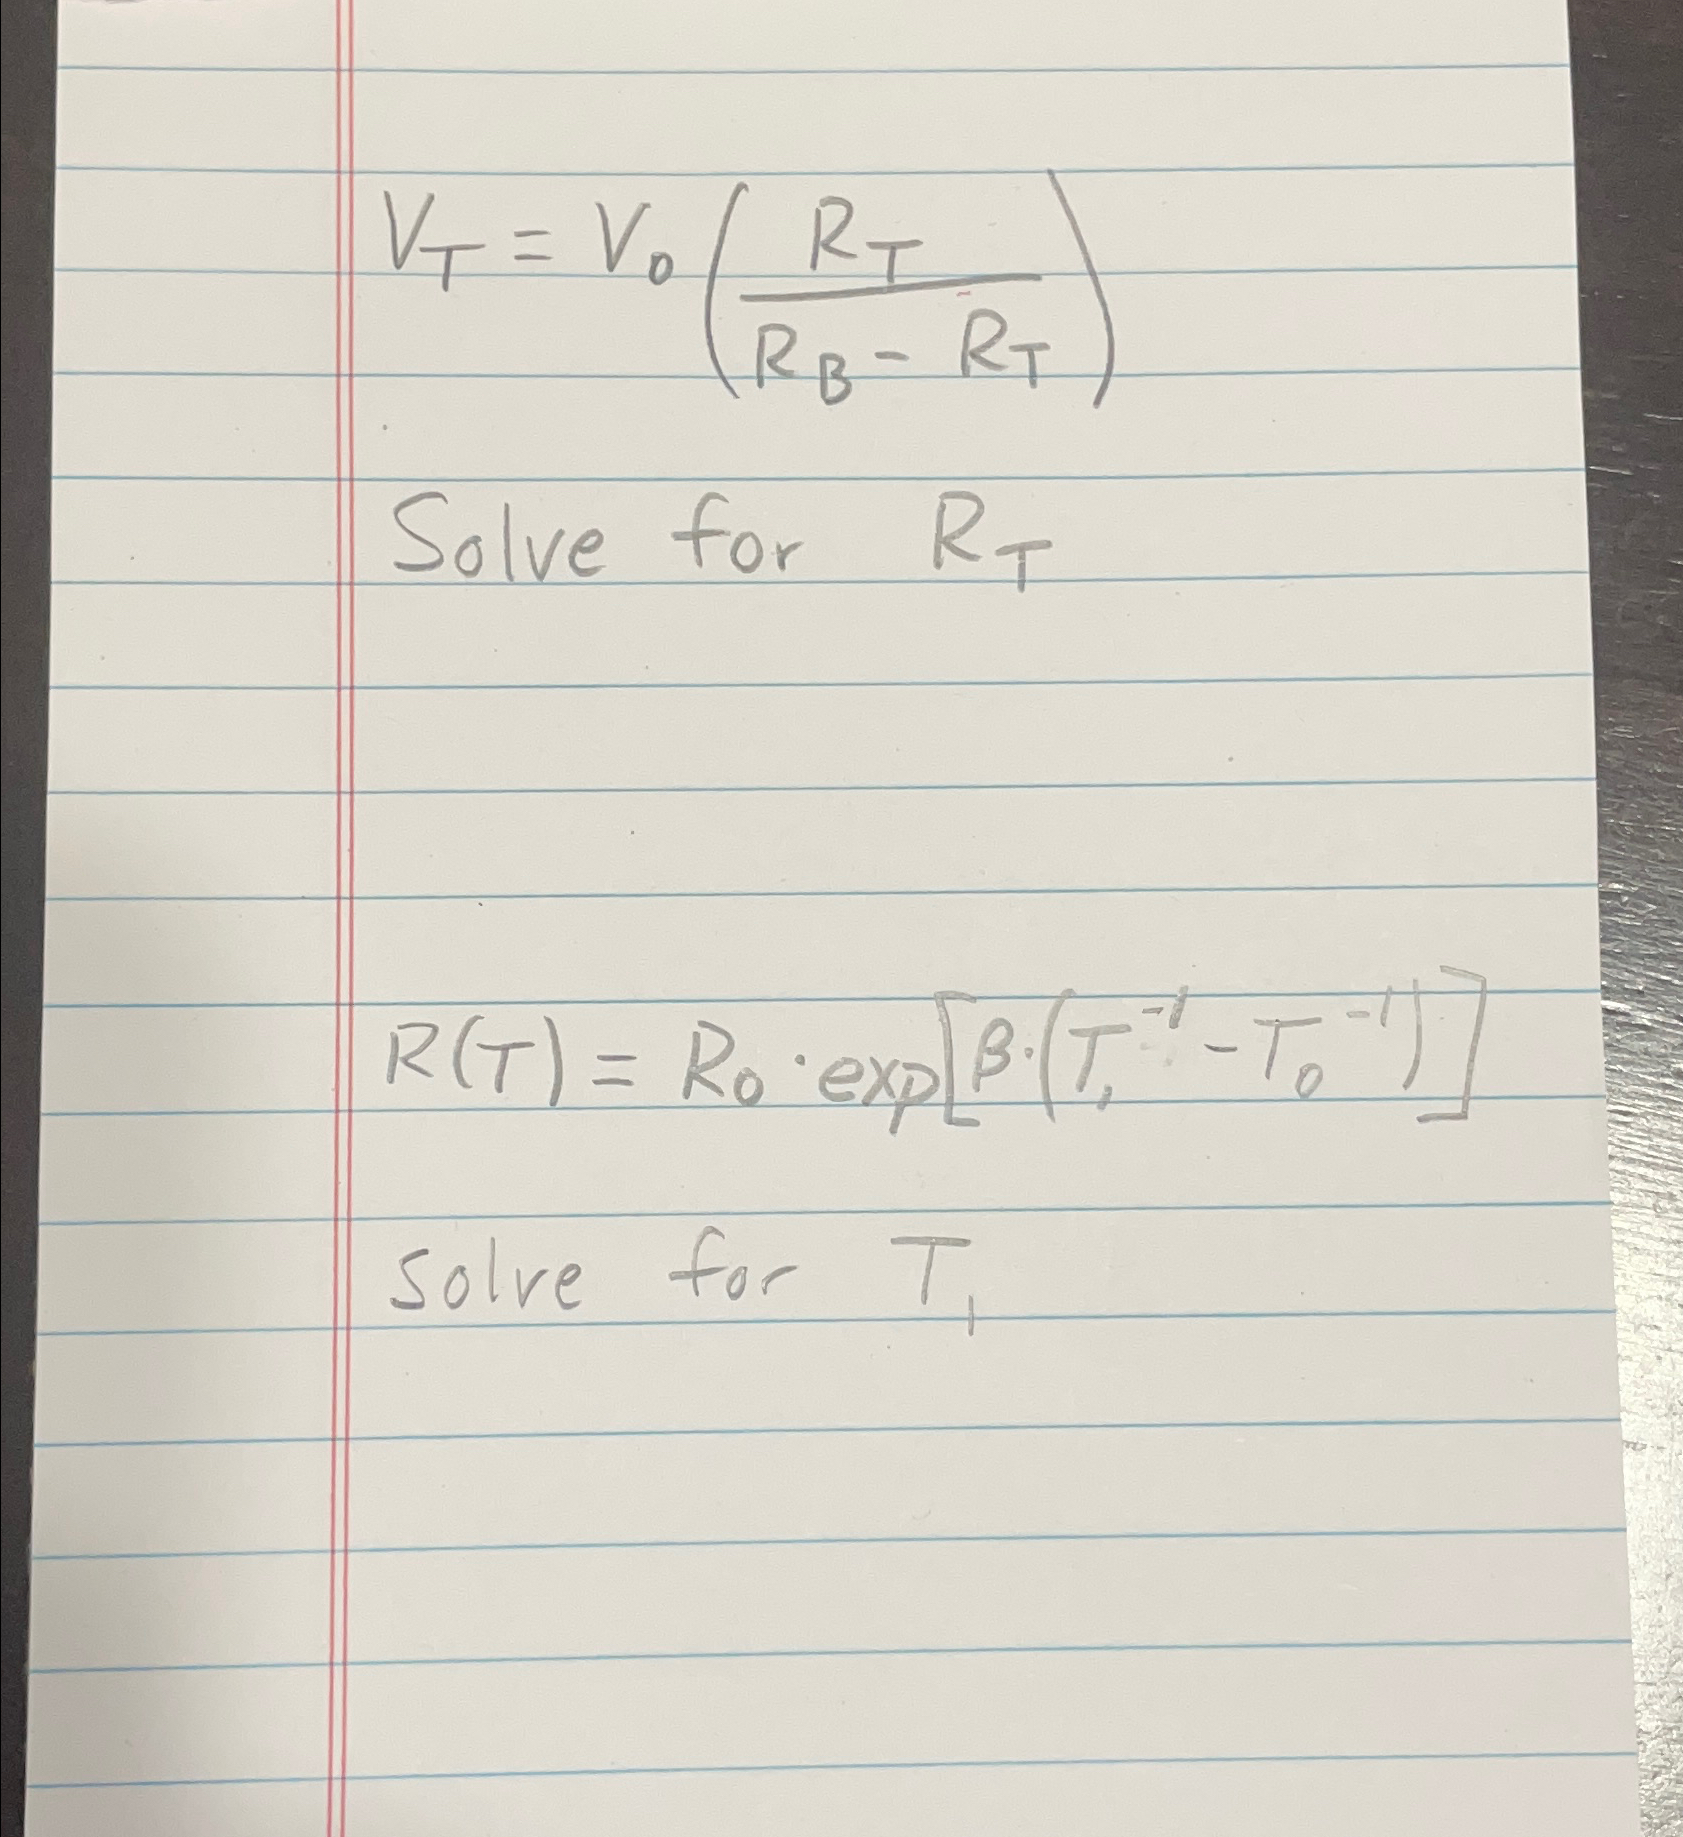 V_T = V_0 (R_T / (R_B - R_T))
Solve for R_T
R(T) = R_0 · exp[β·(T_1^-1 - T_0^-1)]
solve for T_1